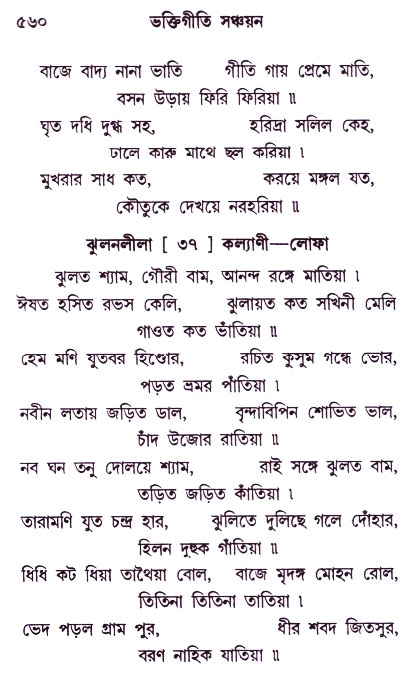 ৫৬০ ভক্তিগীতি সঞ্চয়ন
বাজে বাদ্য নানা ভাতি গীতি গায় প্রেমে মাতি,
বসন উড়ায় ফিরি ফিরিয়া ॥
ঘৃত দধি দুগ্ধ সহ, হরিদ্রা সলিল কেহ,
ঢালে কারু মাথে ছল করিয়া ।
মুখরার সাধ কত, করয়ে মঙ্গল যত,
কৌতুকে দেখয়ে নরহরিয়া ॥
ঝুলনলীলা [ ৩৭ ] কল্যাণী—লোফা
ঝুলত শ্যাম, গৌরী বাম, আনন্দ রঙ্গে মাতিয়া ।
ঈষত হসিত রভস কেলি, ঝুলায়ত কত সখিনী মেলি
গাওত কত ভাঁতিয়া ॥
হেম মণি যুতবর হিণ্ডোর, রচিত কুসুম গন্ধে ভোর,
পড়ত ভ্রমর পাঁতিয়া ।
নবীন লতায় জড়িত ডাল, বৃন্দাবিপিন শোভিত ভাল,
চাঁদ উজোর রাতিয়া ॥
নব ঘন তনু দোলয়ে শ্যাম, রাই সঙ্গে ঝুলত বাম,
তড়িত জড়িত কাঁতিয়া ।
তারামণি যুত চন্দ্র হার, ঝুলিতে দুলিছে গলে দোঁহার,
হিলন দুহুক গাঁতিয়া ॥
ধিধি কট ধিয়া তাথৈয়া বোল, বাজে মৃদঙ্গ মোহন রোল,
তিতিনা তিতিনা তাতিয়া ।
ভেদ পড়ল গ্রাম পুর, ধীর শবদ জিতসুর,
বরণ নাহিক যাতিয়া ॥